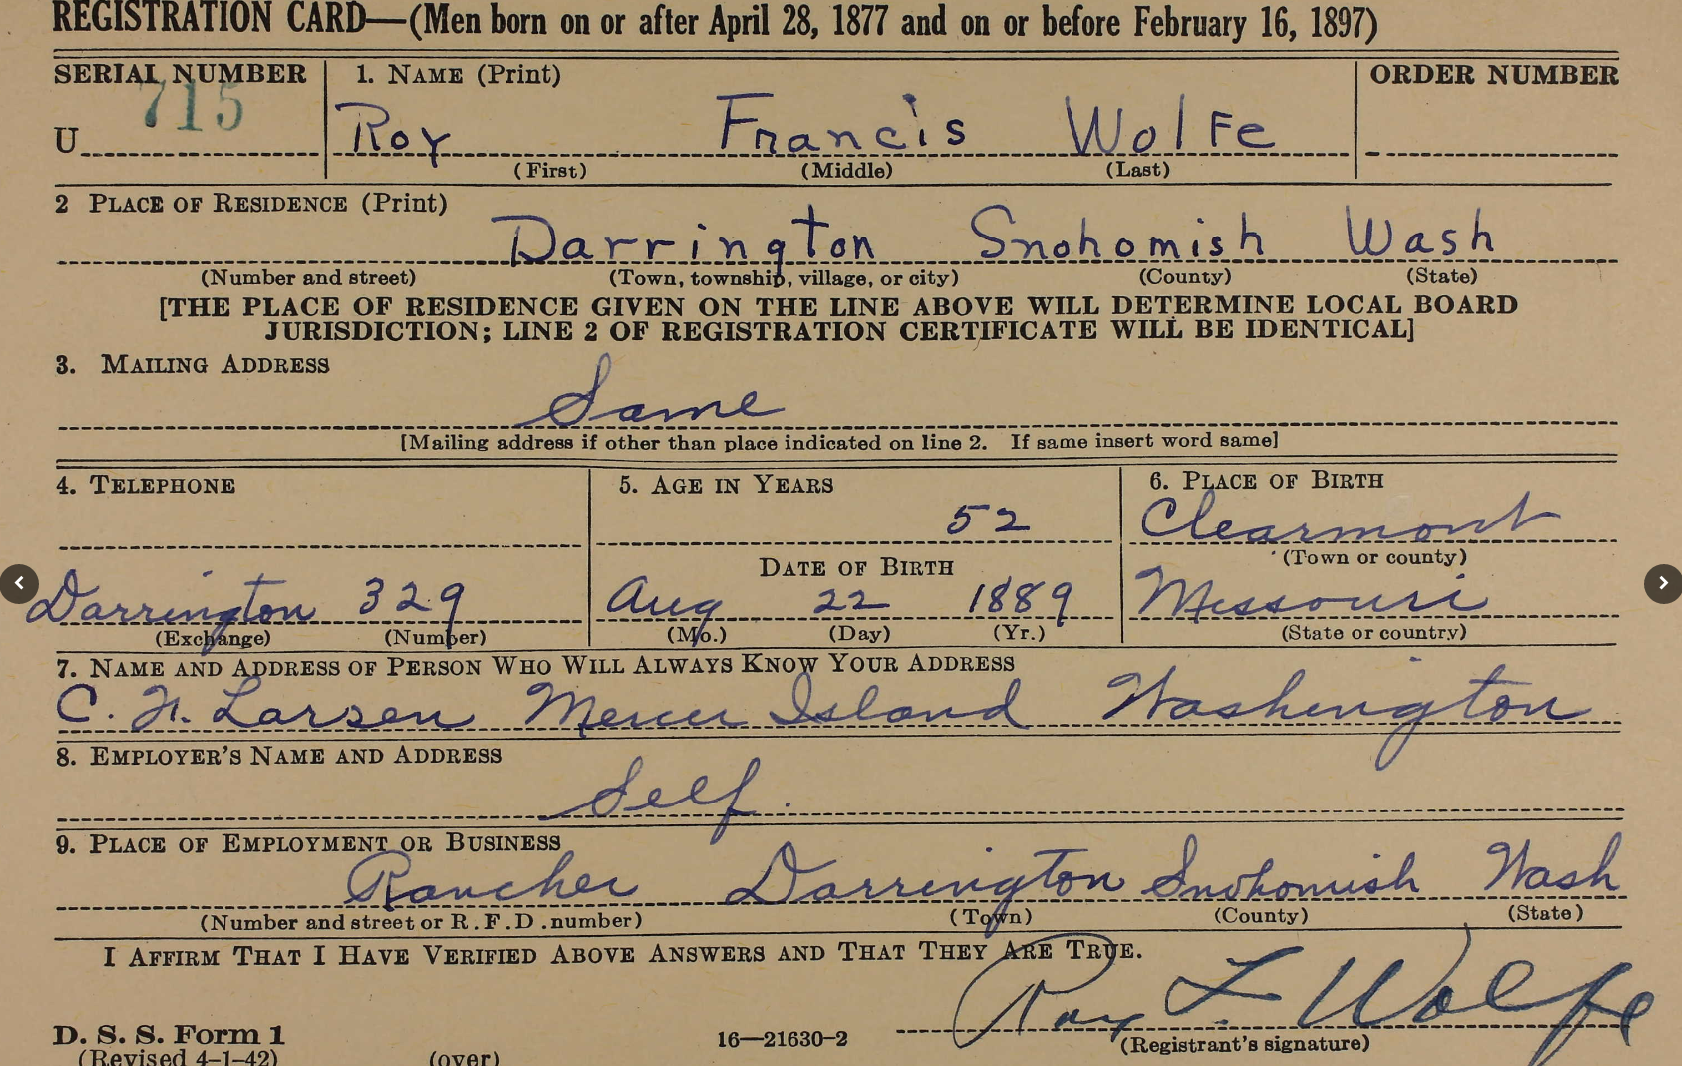 REGISTRATION CARD—(Men born on or after April 28, 1877 and on or before February 16, 1897)
SERIAL NUMBER 1. NAME (Print) ORDER NUMBER
U 715 Roy Francis Wolfe
(First) (Middle) (Last)
2 PLACE OF RESIDENCE (Print)
Darrington Snohomish Wash
(Number and street) (Town, township, village, or city) (County) (State)
[THE PLACE OF RESIDENCE GIVEN ON THE LINE ABOVE WILL DETERMINE LOCAL BOARD
JURISDICTION; LINE 2 OF REGISTRATION CERTIFICATE WILL BE IDENTICAL]
3. MAILING ADDRESS
Same
[Mailing address if other than place indicated on line 2. If same insert word same]
4. TELEPHONE 5. AGE IN YEARS 6. PLACE OF BIRTH
52 Clearmont
DATE OF BIRTH (Town or county)
Darrington 329 Aug 22 1889 Missouri
(Exchange) (Number) (Mo.) (Day) (Yr.) (State or country)
7. NAME AND ADDRESS OF PERSON WHO WILL ALWAYS KNOW YOUR ADDRESS
C. Larsen Mercer Island Washington
8. EMPLOYER'S NAME AND ADDRESS
Self
9. PLACE OF EMPLOYMENT OR BUSINESS
Rancher Darrington Snohomish Wash
(Number and street or R.F.D. number) (Town) (County) (State)
I AFFIRM THAT I HAVE VERIFIED ABOVE ANSWERS AND THAT THEY ARE TRUE.
Roy F Wolfe
D. S. S. Form 1 16—21630-2 (Registrant's signature)
(Revised 4-1-42) (over)